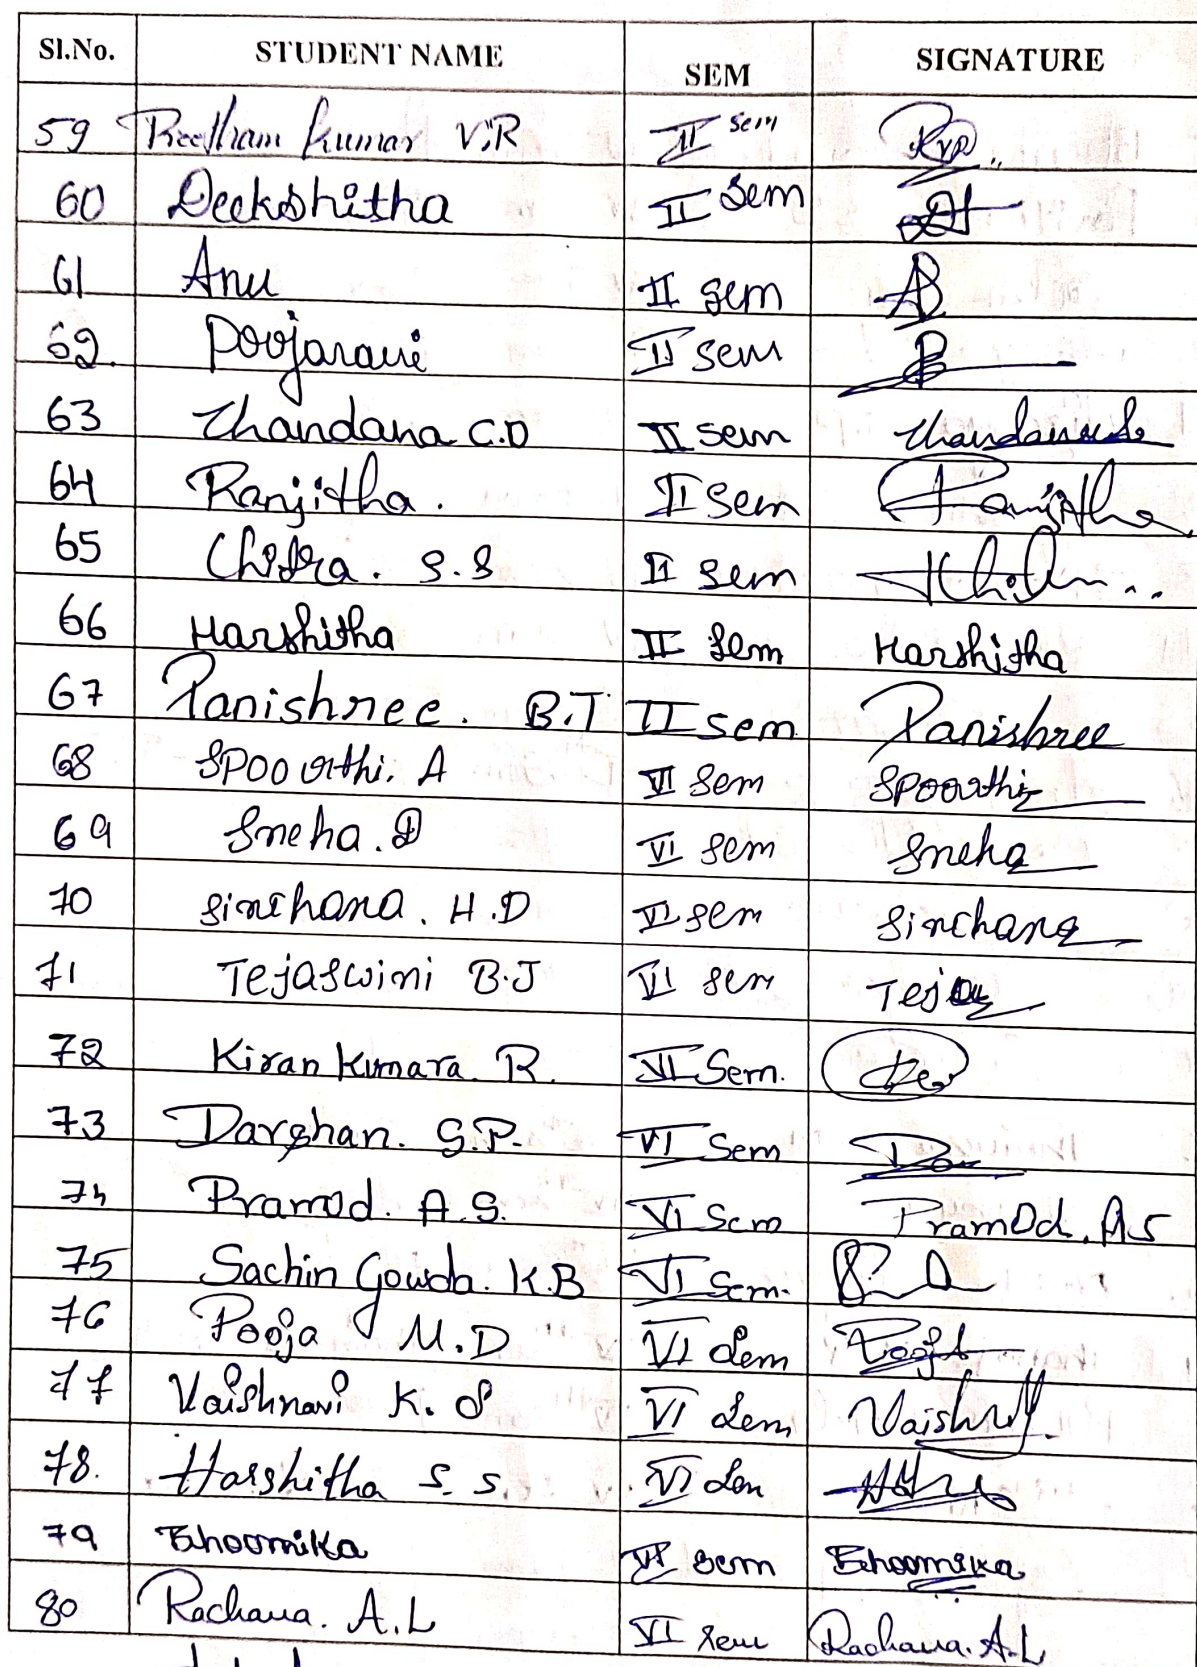 Sl.No. STUDENT NAME SEM SIGNATURE
59 Preetham Kumar V.R II sem RVR
60 Deekshitha II Sem
61 Anu II sem
62. Poojarani II sem
63 Chandana C.D II sem Chandana
64 Ranjitha. II Sem Ranjitha
65 Chitra. S.S II sem
66 Harshitha II Sem Harshitha
67 Panishree. B.T II sem Panishree
68 SPOOrthi. A VI Sem SPOOrthi
69 Sneha. D VI Sem Sneha
70 Sinchana. H.D VI sem Sinchana
71 Tejaswini B.J VI sem Tejas
72 Kiran Kumara. R. VI Sem.
73 Darshan. G.P. VI Sem
74 Pramod. A.S. VI Sem Pramod. A.S
75 Sachin Gowda. K.B VI Sem.
76 Pooja M.D VI Sem Pooja
77 Vaishnavi K. S VI Sem
78. Harshitha S. S. VI Sem
79 Bhoomika VI sem Bhoomika
80 Rachana. A.L VI sem Rachana. A.L